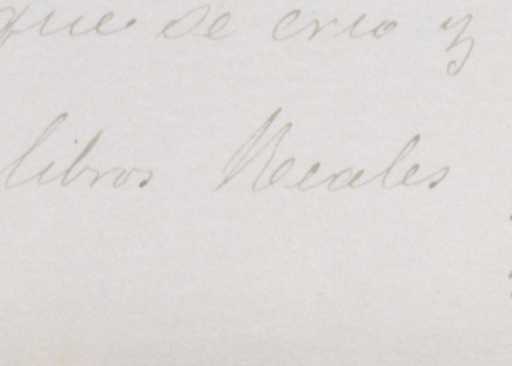 que se crio y
libros Reales